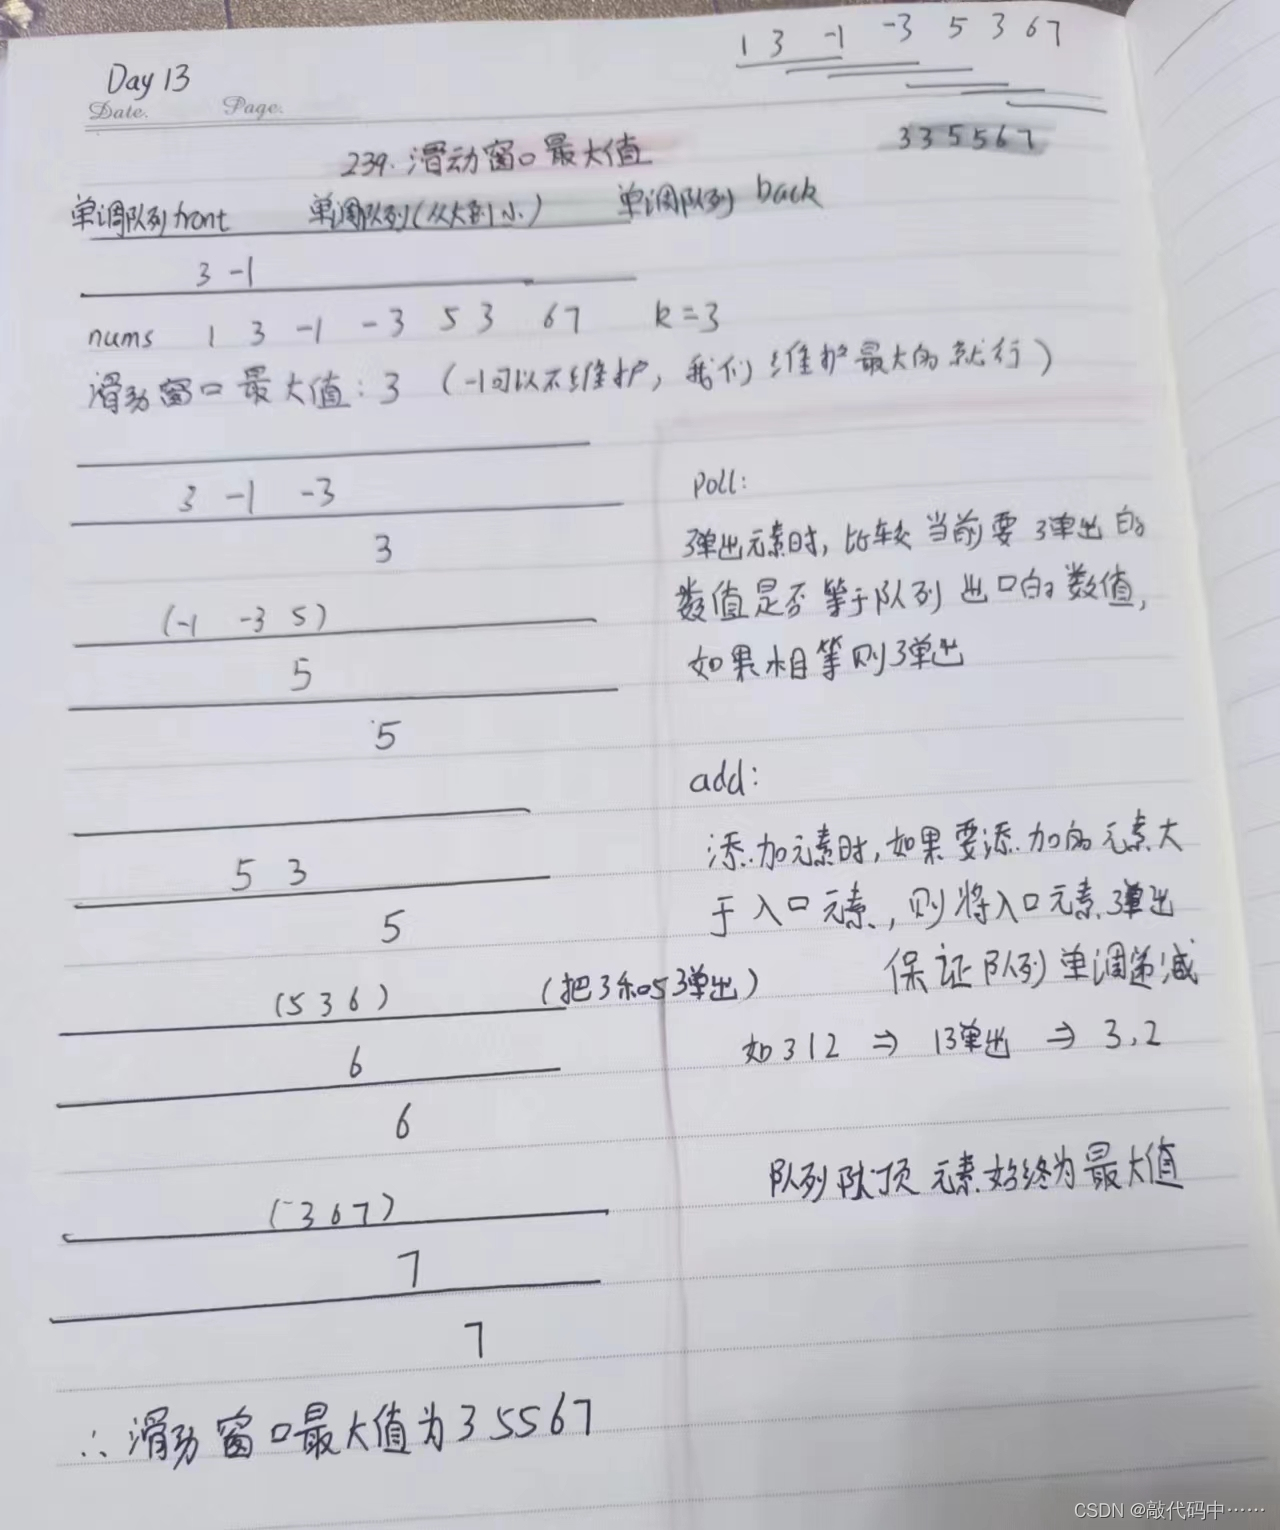 1 3 -1 -3 5 3 6 7
Day 13
Date. Page.
3 3 5 5 6 7
239. 滑动窗口最大值
单调队列front 单调队列(从大到小) 单调队列 back
3 -1
nums 1 3 -1 -3 5 3 6 7 k=3
滑动窗口最大值: 3 (-1可以不维护, 我们维护最大的就行)
3 -1 -3
3
(-1 -3 5)
5
5
5 3
5
(5 3 6) (把3和5弹出)
6
6
(3 6 7)
7
7
∴ 滑动窗口最大值为3 5 5 6 7
Poll:
弹出元素时, 比较当前要弹出的
数值是否等于队列出口的数值,
如果相等则弹出
add:
添加元素时, 如果要添加的元素大
于入口元素, 则将入口元素弹出
保证队列单调递减
如 3 1 2 ⇒ 1弹出 ⇒ 3,2
队列队顶元素始终为最大值
CSDN @敲代码中……